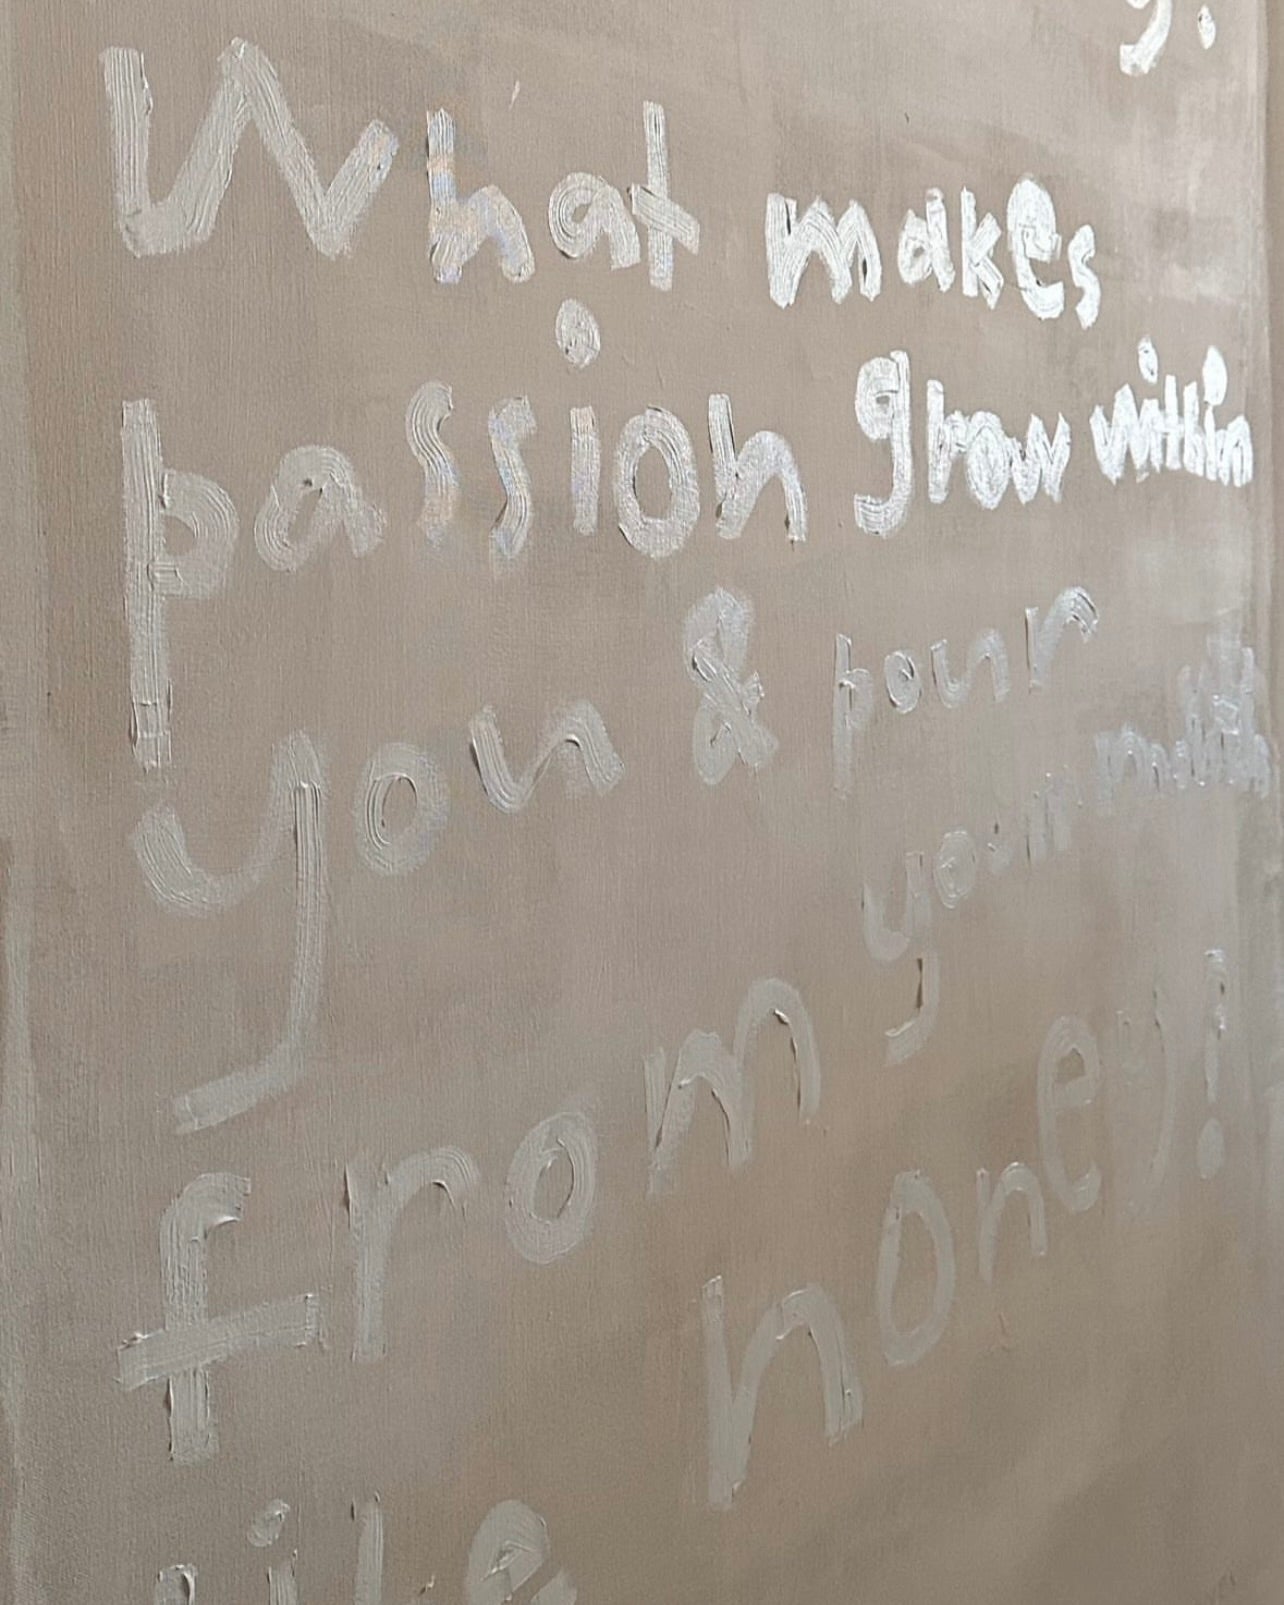 y!
What makes
passion grow within
you & pour
your
from
honey!